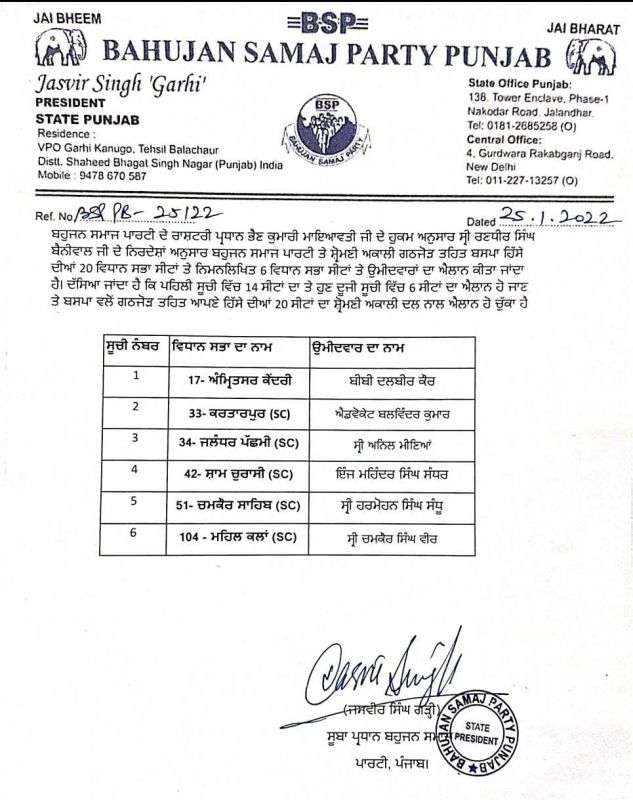 JAI BHEEM
BSP
JAI BHARAT
BAHUJAN SAMAJ PARTY PUNJAB
Jasvir Singh 'Garhi'
PRESIDENT
STATE PUNJAB
Residence :
VPO Garhi Kanugo, Tehsil Balachaur
Distt. Shaheed Bhagat Singh Nagar (Punjab) India
Mobile : 9478 670 587
BSP
BAHUJAN SAMAJ PARTY
State Office Punjab:
138, Tower Enclave, Phase-1
Nakodar Road, Jalandhar.
Tel: 0181-2685258 (O)
Central Office:
4, Gurdwara Rakabganj Road,
New Delhi
Tel: 011-227-13257 (O)
Ref. No BSP PB- 25/22
Dated 25.1.2022
ਬਹੁਜਨ ਸਮਾਜ ਪਾਰਟੀ ਦੇ ਰਾਸ਼ਟਰੀ ਪ੍ਰਧਾਨ ਭੈਣ ਕੁਮਾਰੀ ਮਾਇਆਵਤੀ ਜੀ ਦੇ ਹੁਕਮ ਅਨੁਸਾਰ ਸ੍ਰੀ ਰਣਧੀਰ ਸਿੰਘ
ਬੈਨੀਵਾਲ ਜੀ ਦੇ ਨਿਰਦੇਸ਼ਾਂ ਅਨੁਸਾਰ ਬਹੁਜਨ ਸਮਾਜ ਪਾਰਟੀ ਤੇ ਸ਼੍ਰੋਮਣੀ ਅਕਾਲੀ ਗਠਜੋੜ ਤਹਿਤ ਬਸਪਾ ਹਿੱਸੇ
ਦੀਆਂ 20 ਵਿਧਾਨ ਸਭਾ ਸੀਟਾਂ ਤੇ ਨਿਮਨਲਿਖਿਤ 6 ਵਿਧਾਨ ਸਭਾ ਸੀਟਾਂ ਤੇ ਉਮੀਦਵਾਰਾਂ ਦਾ ਐਲਾਨ ਕੀਤਾ ਜਾਂਦਾ
ਹੈ। ਦੱਸਿਆ ਜਾਂਦਾ ਹੈ ਕਿ ਪਹਿਲੀ ਸੂਚੀ ਵਿੱਚ 14 ਸੀਟਾਂ ਦਾ ਤੇ ਹੁਣ ਦੂਜੀ ਸੂਚੀ ਵਿੱਚ 6 ਸੀਟਾਂ ਦਾ ਐਲਾਨ ਹੋ ਜਾਣ
ਤੇ ਬਸਪਾ ਵਲੋਂ ਗਠਜੋੜ ਤਹਿਤ ਆਪਣੇ ਹਿੱਸੇ ਦੀਆਂ 20 ਸੀਟਾਂ ਦਾ ਸ਼੍ਰੋਮਣੀ ਅਕਾਲੀ ਦਲ ਨਾਲ ਐਲਾਨ ਹੋ ਚੁੱਕਾ ਹੈ
ਸੂਚੀ ਨੰਬਰ ਵਿਧਾਨ ਸਭਾ ਦਾ ਨਾਮ ਉਮੀਦਵਾਰ ਦਾ ਨਾਮ
1 17- ਅੰਮ੍ਰਿਤਸਰ ਕੇਂਦਰੀ ਬੀਬੀ ਦਲਬੀਰ ਕੌਰ
2 33- ਕਰਤਾਰਪੁਰ (SC) ਐਡਵੋਕੇਟ ਬਲਵਿੰਦਰ ਕੁਮਾਰ
3 34- ਜਲੰਧਰ ਪੱਛਮੀ (SC) ਸ੍ਰੀ ਅਨਿਲ ਮੀਣਿਆਂ
4 42- ਸ਼ਾਮ ਚੁਰਾਸੀ (SC) ਇੰਜ ਮਹਿੰਦਰ ਸਿੰਘ ਸੰਧਰ
5 51- ਚਮਕੌਰ ਸਾਹਿਬ (SC) ਸ੍ਰੀ ਹਰਮੋਹਨ ਸਿੰਘ ਸੰਧੂ
6 104 - ਮਹਿਲ ਕਲਾਂ (SC) ਸ੍ਰੀ ਚਮਕੌਰ ਸਿੰਘ ਵੀਰ
Jasvir Singh
(ਜਸਵੀਰ ਸਿੰਘ ਗੜ੍ਹੀ)
ਸੂਬਾ ਪ੍ਰਧਾਨ ਬਹੁਜਨ ਸਮਾਜ
ਪਾਰਟੀ, ਪੰਜਾਬ।
BAHUJAN SAMAJ PARTY PUNJAB
STATE
PRESIDENT